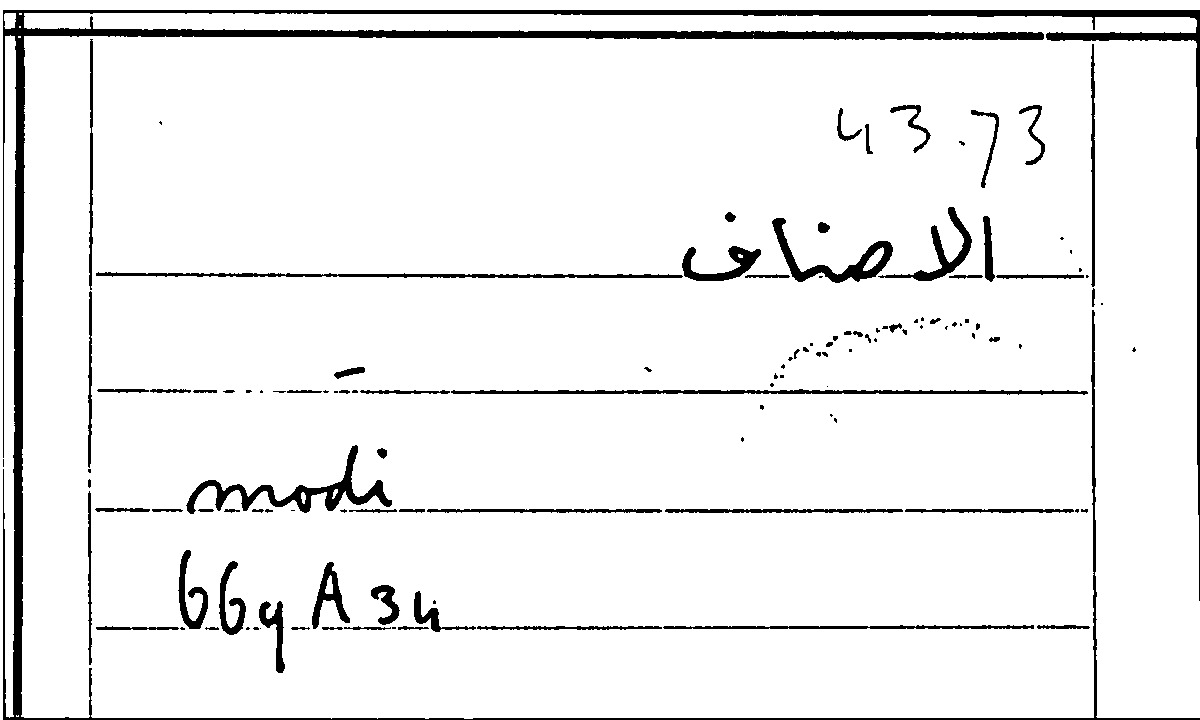 43.73
الاصناف
modi
669 A 34